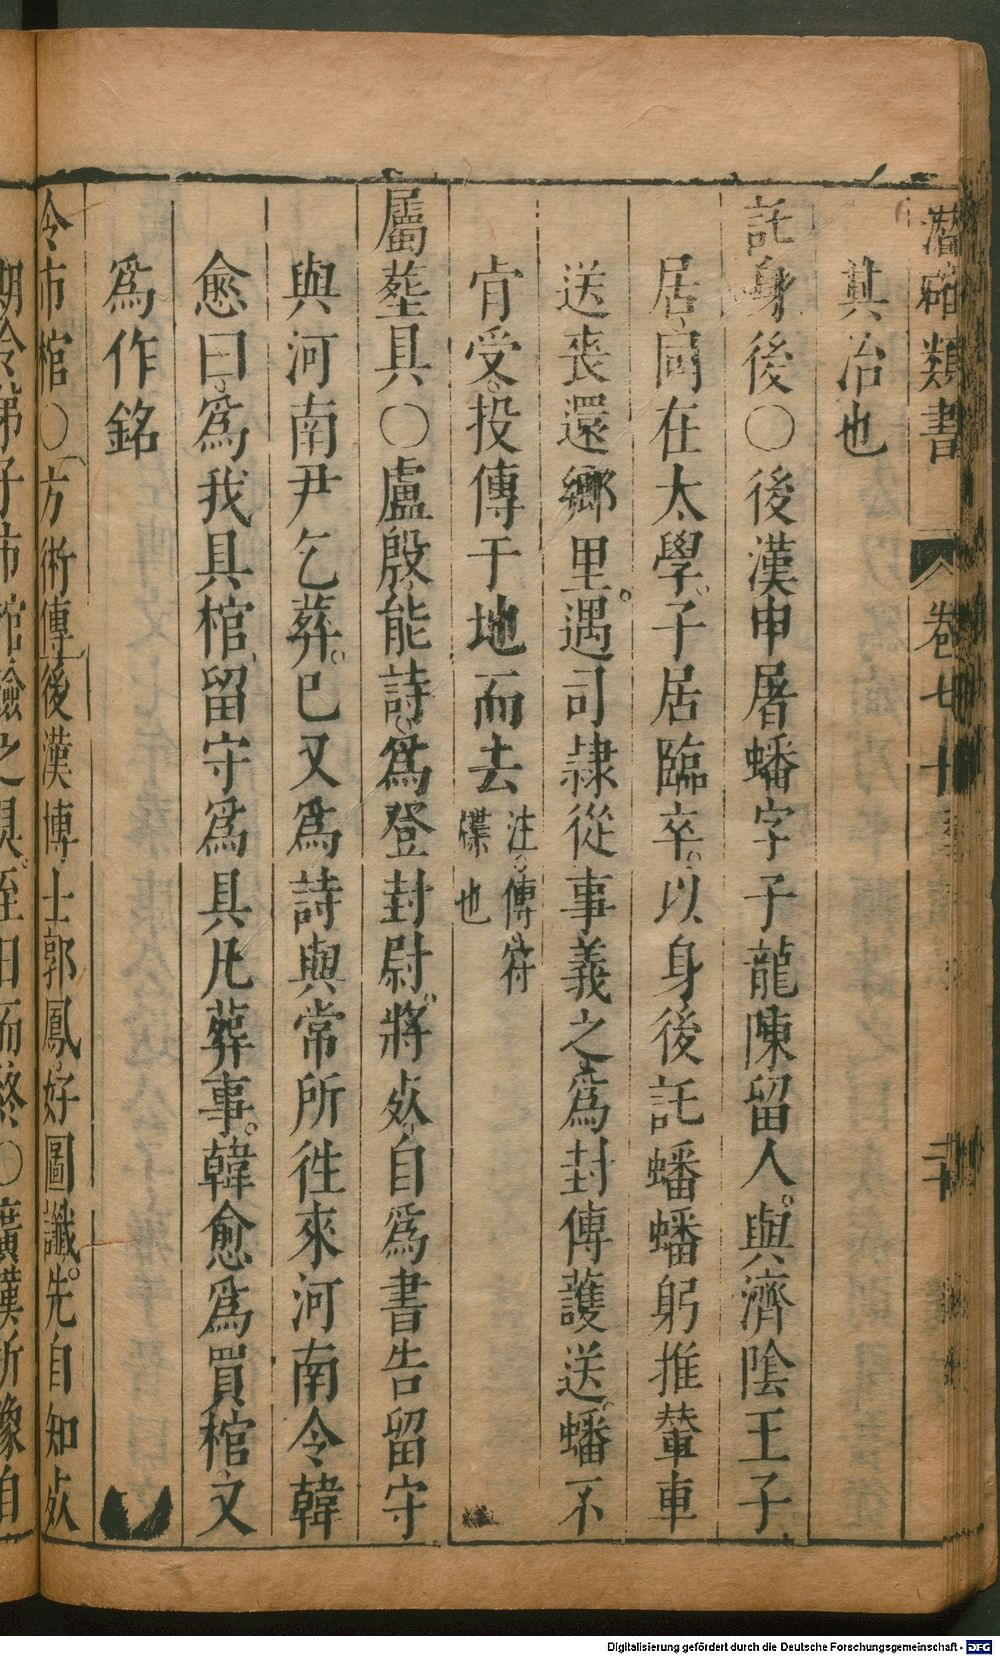 潛確類書 卷七十 二十
其冶也
託身後〇後漢申屠蟠字子龍陳留人與濟陰王子
居同在太學子居臨卒以身後託蟠蟠躬推輦車
送喪還鄉里遇司隸從事義之爲封傳護送蟠不
肯受投傳于地而去
注傳符
㸁也
屬塟具〇盧殷能詩爲登封尉將歿自爲書告留守
與河南尹乞葬已又爲詩與常所徃來河南令韓
愈曰爲我具棺留守爲具凡葬事韓愈爲買棺文
爲作銘
令市棺〇方術傳後漢博士郭鳳好圖讖先自知歿
期令弟子市棺殮之具至日而終〇廣漢折像自
Digitalisierung gefördert durch die Deutsche Forschungsgemeinschaft - DFG